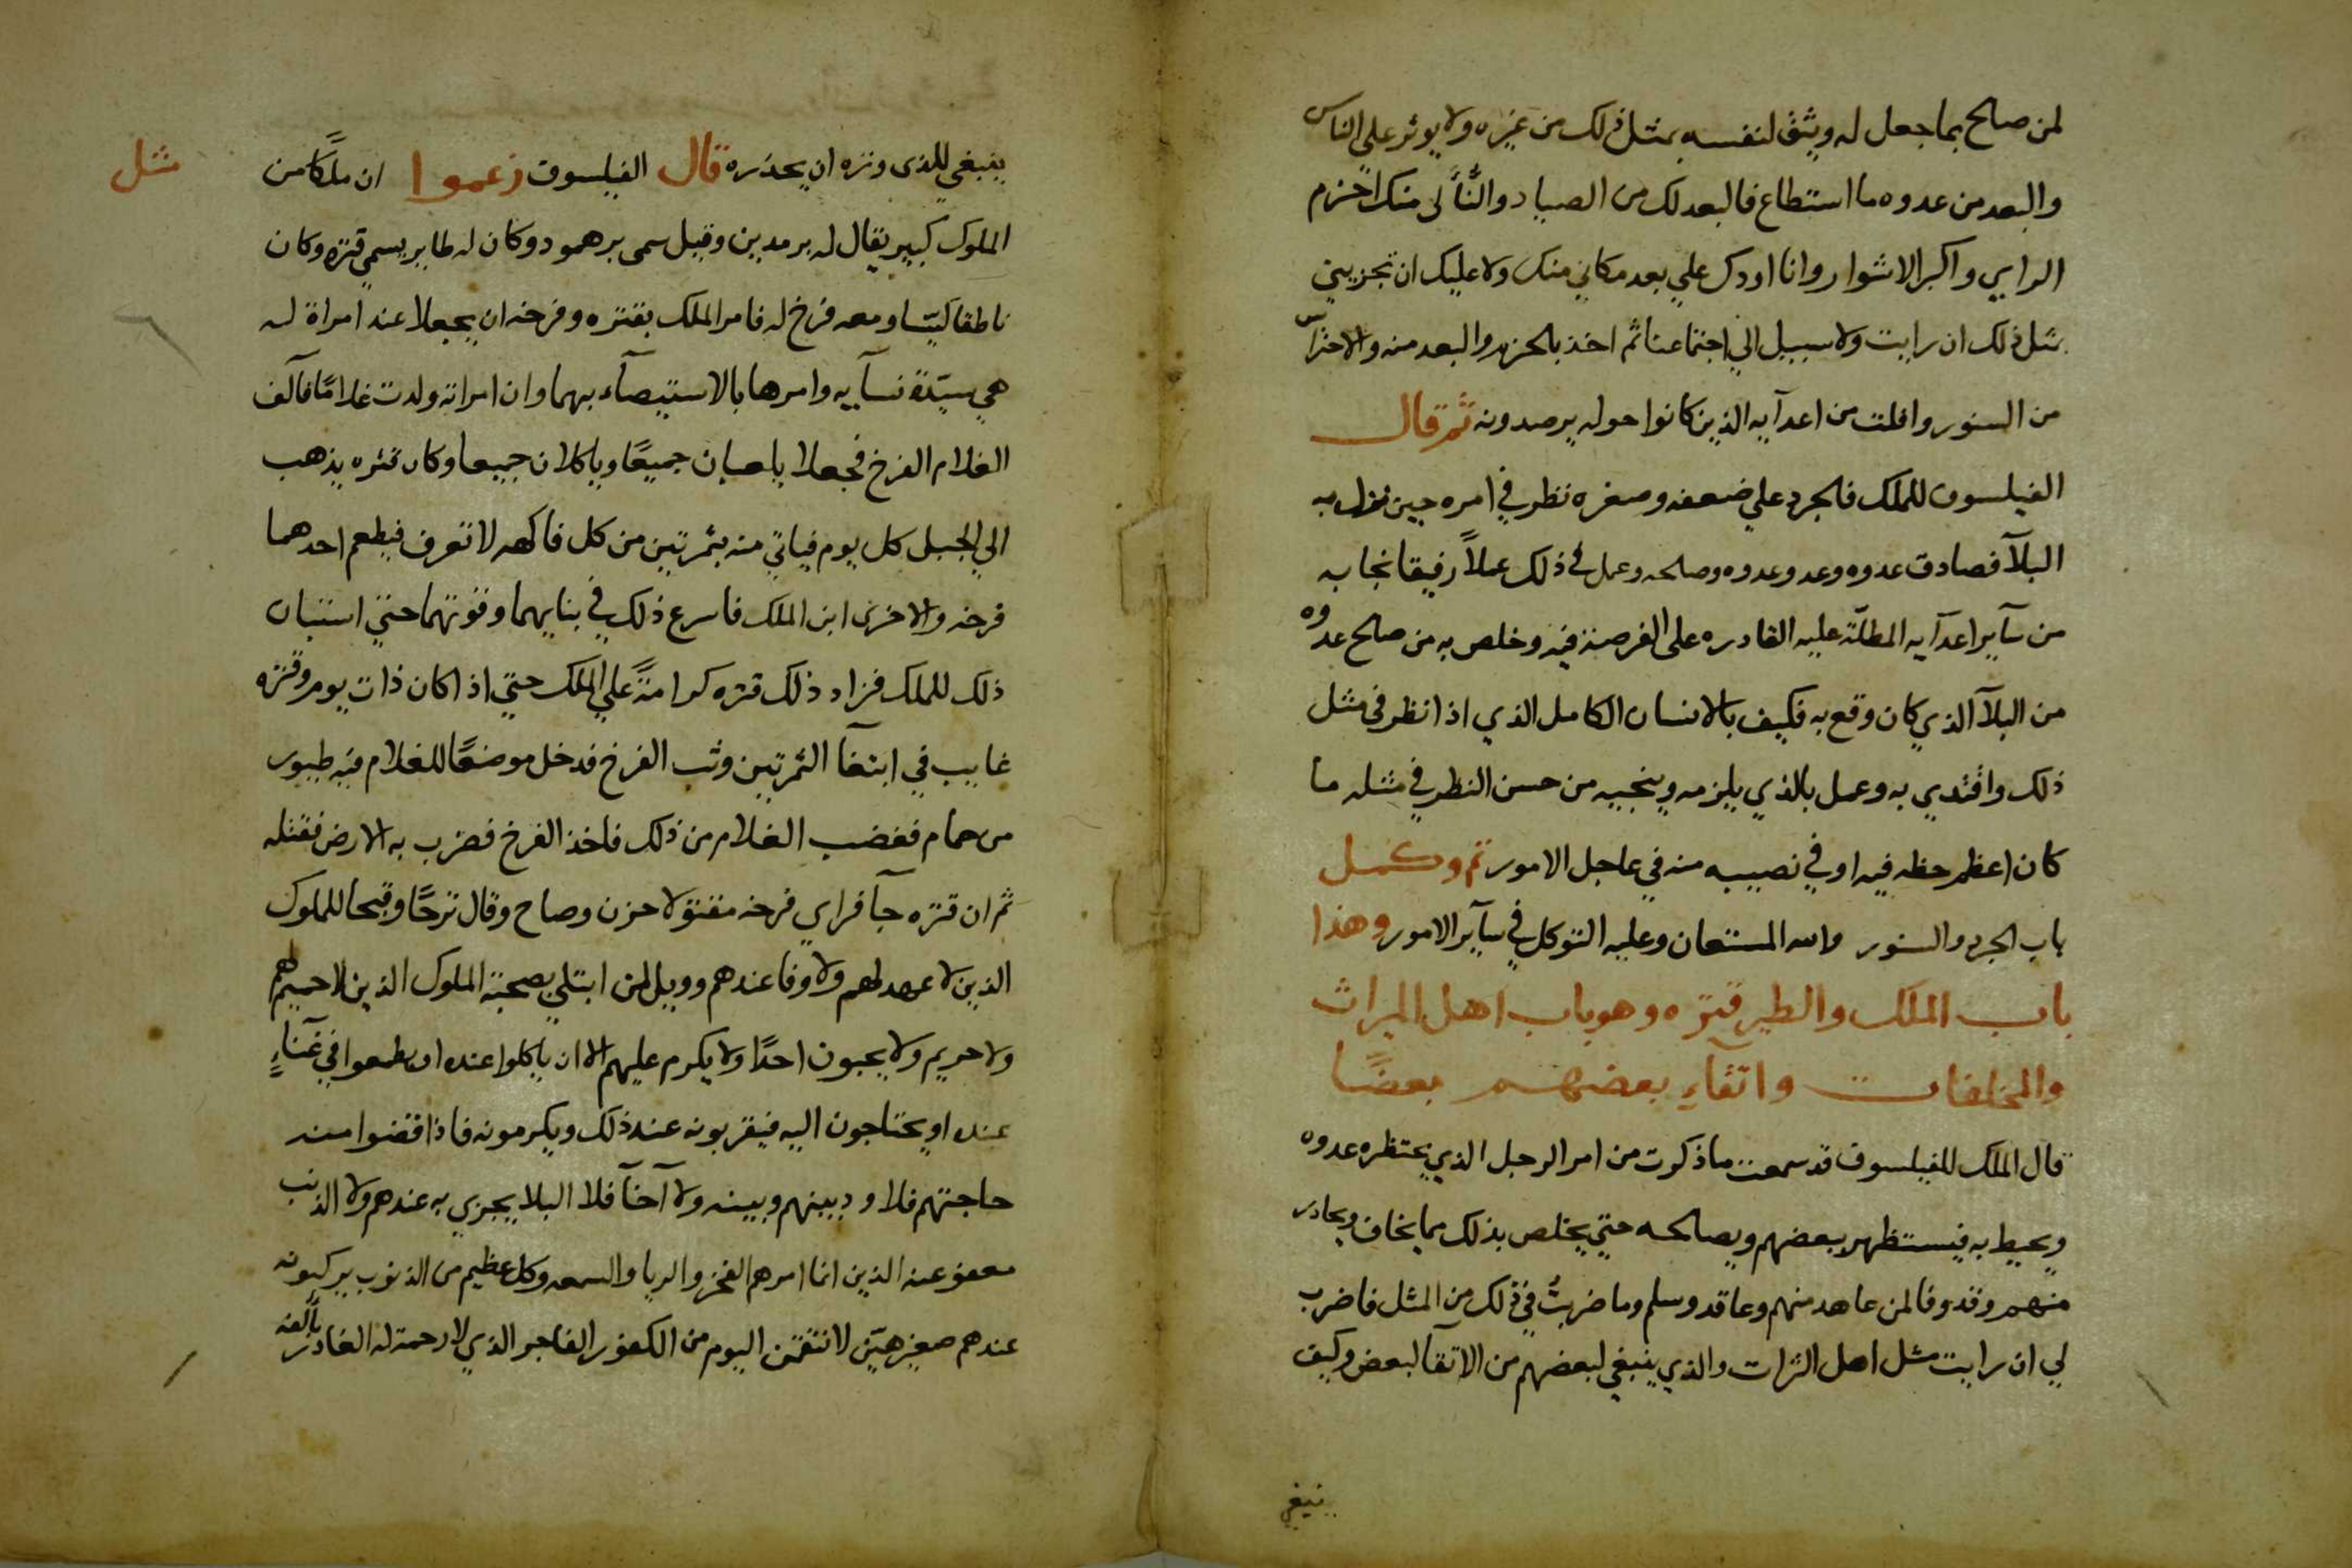 لمن صالح بما جعل له ويثق لنفسه بمثل ذلك من غيره ولا يوثر علي الناس
والبعد من عدوه ما استطاع فالبعد لك من الصياد والنَّأَلى منك احزم
الراي واكبر الاشوار وانا اودك علي بعد مكاني منك ولا عليك ان تجزيني
بمثل ذلك ان رايت ولا سبيل الي اجتماعنا ثم اخذ بالحزم والبعد منه والاحتراس
من السنور وافلت من اعدآيه الذين كانوا حوله يرصدونه ثم قال
الفيلسوف للملك فالجرد علي ضعفه وصغره نظر في امره حين نزل به
البلآ فصادق عدوه وعدو عدوه وصالحه وعمل في ذلك عملاً رفيقا نجا به
من سآير اعدآيه المطلّة عليه القادره على الفرصة فيه وخلص به من صالح عدوه
من البلآ الذي كان وقع به فكيف بالانسان الكامل الذي اذا نظر في مثل
ذلك واقتدي به وعمل بالذي يلزمه وينجيه من حسن النظر في مثله ما
كان اعظم حظه فيه اوفي نصيبه منه في عاجل الامور تم وكمل
باب الجرد والسنور والله المستعان وعليه التوكل في سآير الامور وهذا
باب الملك والطير قنزه وهو باب اهل الميراث
والمخلفات واتقاءِ بعضهم بعضًا
قال الملك للفيلسوف قد سمعت ما ذكرت من امر الرجل الذي يحتظره عدوه
ويحيط به فيستظهر ببعضهم ويصالحه حتي يخلص بذلك مما يخاف ويحادر
منهم وقد وفا لمن عاهد منهم وعاقد وسلم وما ضربتُ في ذلك من المثل فاضرب
لي ان رايت مثل اهل الترات والذي ينبغي لبعضهم من الاتقا لبعض وكيف
ينبغي
ينبغي للذى وتره ان يحذره قال الفيلسوف زعموا ان ملكًا من
مثل
الملوك كبير يقال له برمدين وقيل سمى برهمود وكان له طاير يسمي قنزه وكان
ناطقا كيّسا ومعه فرخ له فامر الملك بقنزه وفرخه ان يجعلا عند امراة له
هي سيّدة نسآيه وامرها بالاستيصآء بهما وان امراته ولدت غلامًا فآلف
الغلام الفرخ فجعلا يلعبان جميعًا وياكلان جميعا وكان قنزه يذهب
الي الجبل كل يوم فياتي منه بثمرتين من كل فاكهه لا تعرف فيطعم احدهما
فرخه والاخرى ابن الملك فاسرع ذلك في بنايهما وقوتهما حتي استبان
ذلك للملك فزاد ذلك قنزه كرامةً علي الملك حتي اذا كان ذات يوم وقنزه
غايب في ابتغآ الثمرتين وثب الفرخ فدخل موضعًا للغلام فيه طيور
من حمام فغضب الغلام من ذلك فاخذ الفرخ فضرب به الارض فقتله
ثم ان قنزه جآ فراي فرخه مقتولا حزن وصاح وقال ترحًا وقبحا للملوك
الذين لا عهد لهم ولا وفا عندهم وويل لمن ابتلي بصحبة الملوك الذين لا حميم لهم
ولا حريم ولا يحبون احدًا ولا يكرم عليهم الا ان ياكلوا عنده او يطمعوا في غنآءٍ
عنده او يحتاجون اليه فيقربونه عند ذلك ويكرمونه فاذا قضوا منه
حاجتهم فلا ود بينهم وبينه ولا آخآ فلا البلا يجزي به عندهم ولا الذنب
معفو عنه الذين انما امرهم الفخر والريا والسمعه وكل عظيم من الذنوب يركبونه
عندهم صغير هيّن لا نتقمن اليوم من الكفور الفاجر الذي لا رحمة له الغادر بألفه